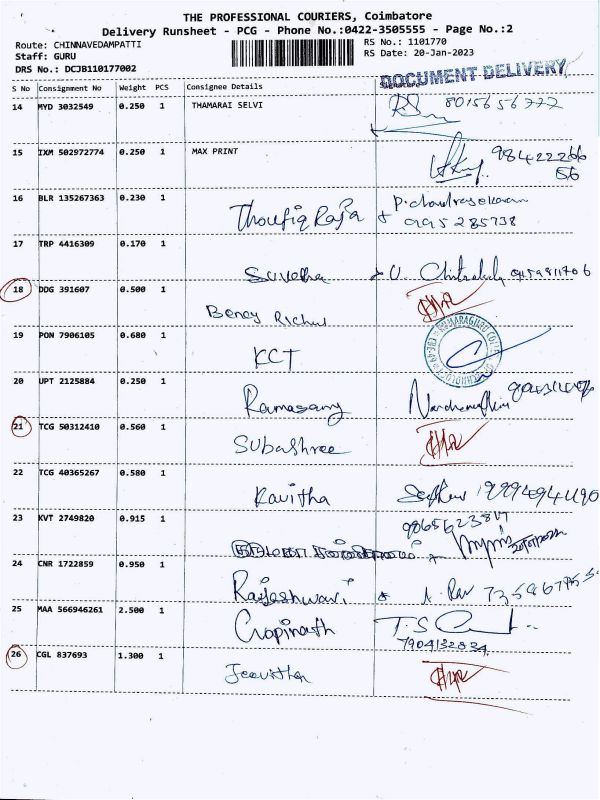 THE PROFESSIONAL COURIERS, Coimbatore
Delivery Runsheet - PCG - Phone No.:0422-3505555 - Page No.:2
Route: CHINNAVEDAMPATTI
RS No.: 1101770
Staff: GURU
RS Date: 20-Jan-2023
DRS No.: DCJB110177002
DOCUMENT DELIVERY
S No Consignment No Weight PCS Consignee Details Signature
14 MYD 3032549 0.250 1 THAMARAI SELVI
15 IXM 502972774 0.250 1 MAX PRINT 98422266
56
16 BLR 135267363 0.230 1 Thoufiq Raja
17 TRP 4416309 0.170 1
18 DDG 391607 0.500 1
19 PON 7906105 0.680 1 KCT
20 UPT 2125884 0.250 1 Ramasamy
21 TCG 50312410 0.560 1 Subashree
22 TCG 40365267 0.580 1 Kavitha
23 KVT 2749820 0.915 1
24 CNR 1722859 0.950 1 Rajeshwari
25 MAA 566946261 2.500 1 Gopinath T.S
7904132834
26 CGL 837693 1.300 1 Jeevitha